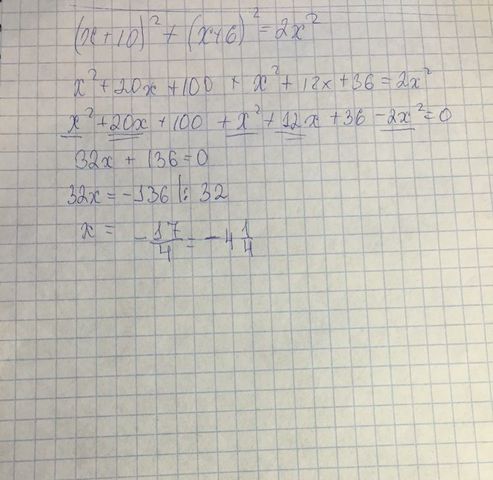 (x+10)² + (x+6)² = 2x²
x² + 20x + 100 + x² + 12x + 36 = 2x²
x² + 20x + 100 + x² + 12x + 36 - 2x² = 0
32x + 136 = 0
32x = -136 |: 32
x = -17/4 = -4 1/4